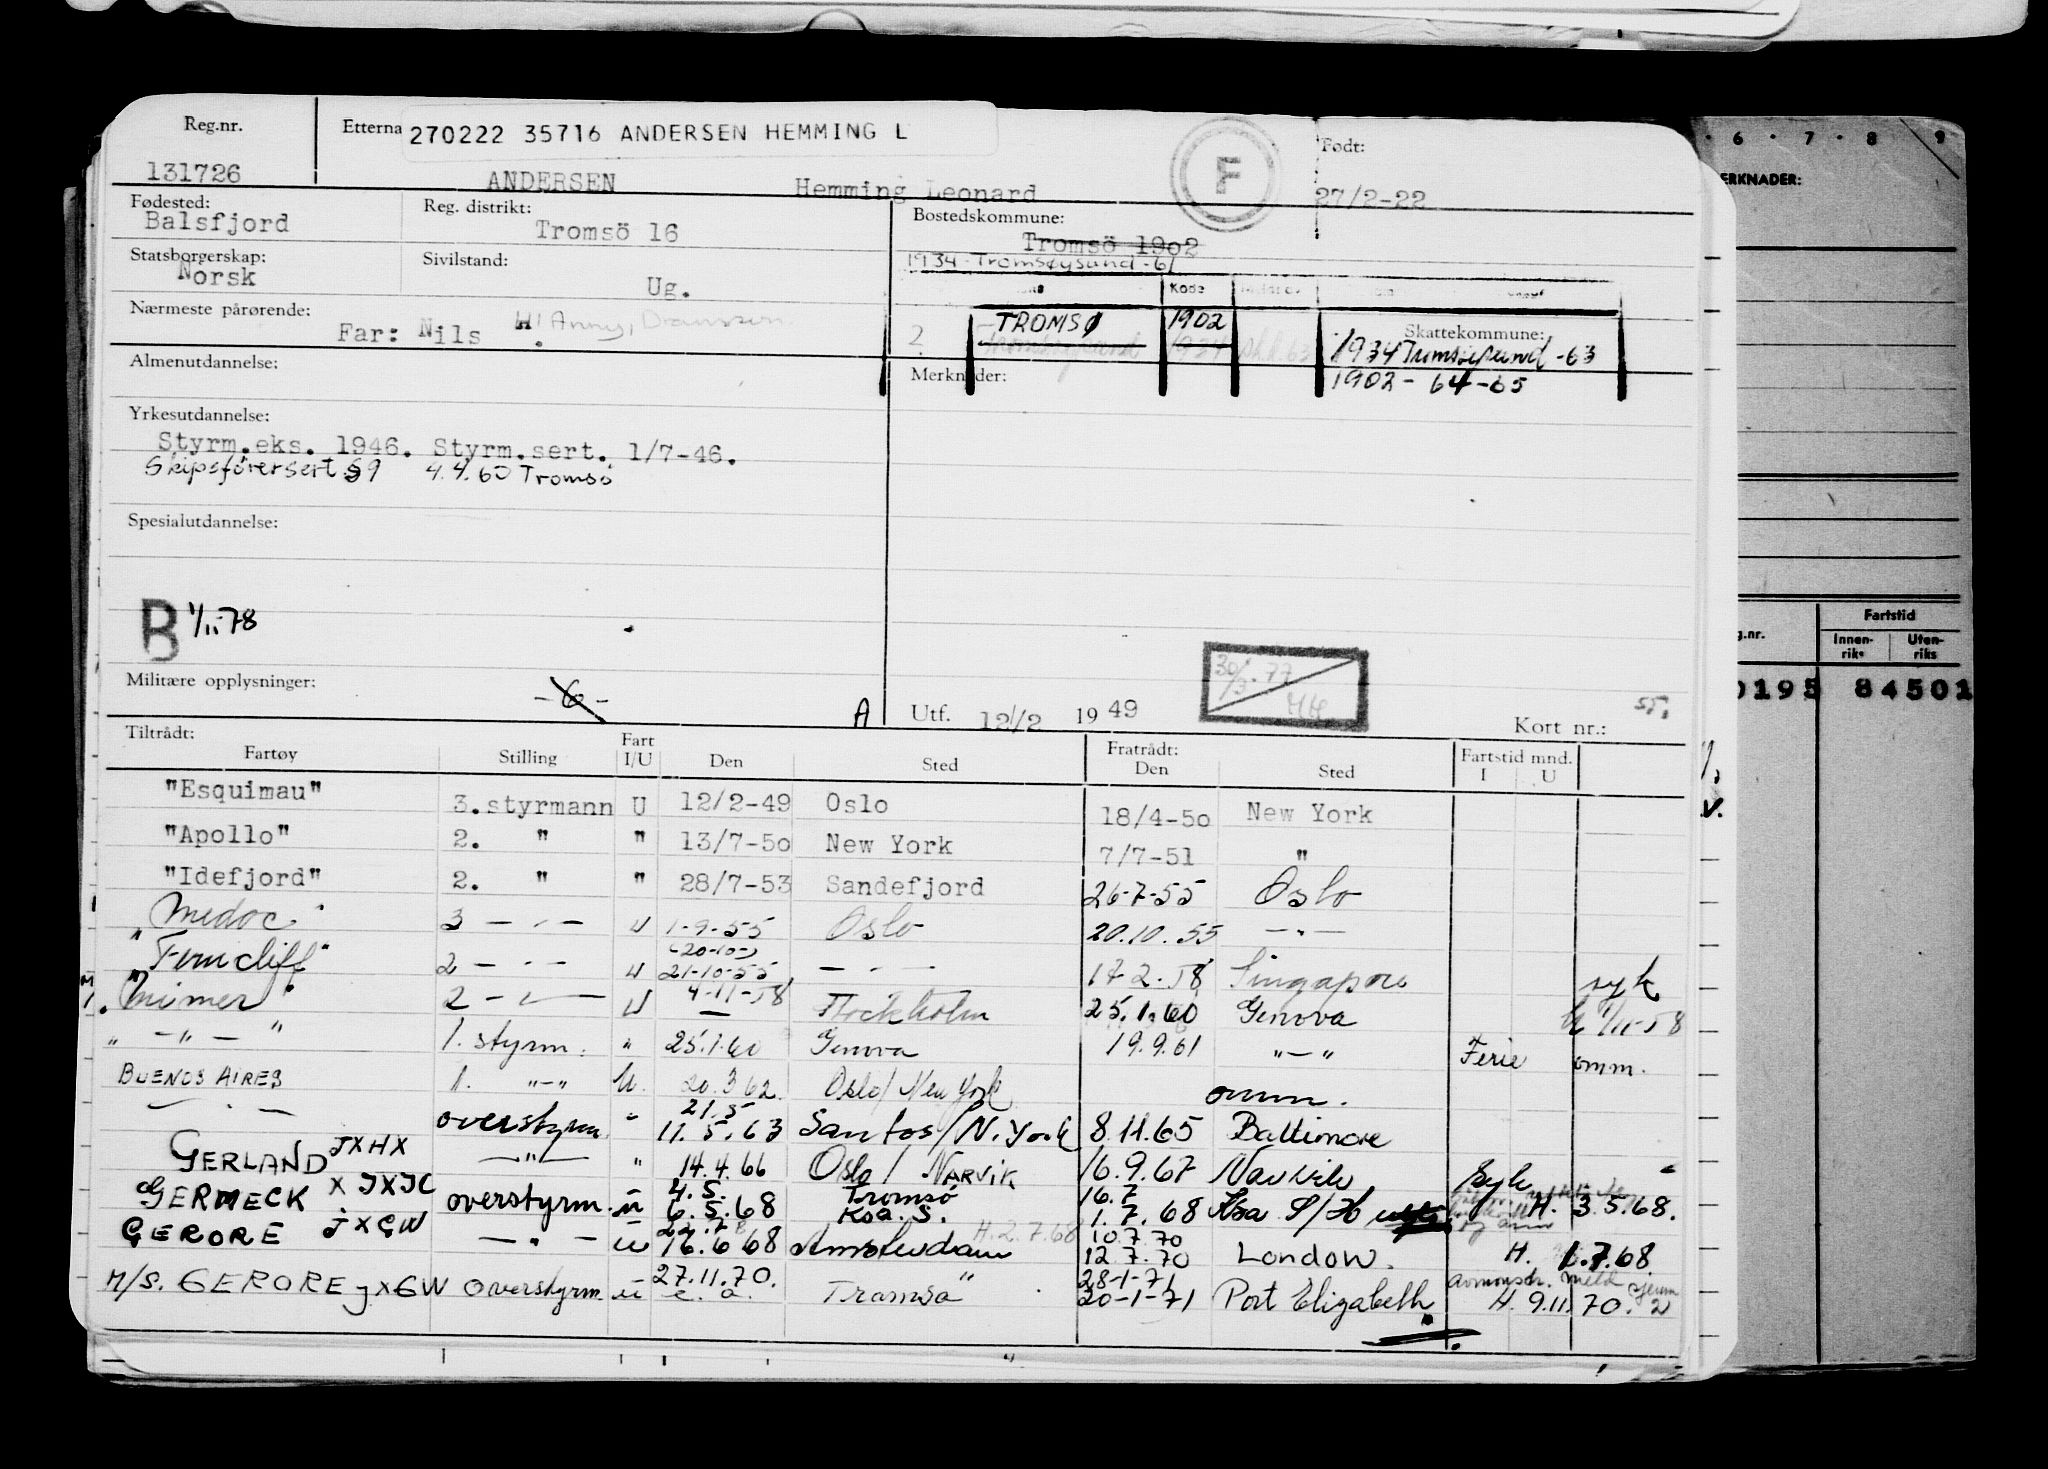 Reg.nr.
Etterna 270222 35716 ANDERSEN HEMMING L
F
Født:
131726 ANDERSEN Hemming Leonard 27/2-22
Fødested: Reg. distrikt: Bostedskommune:
Balsfjord Tromsö 16 Tromsö 1902
1934 - Tromsøysund - 61
Statsborgerskap: Sivilstand:
Norsk Ug.
Kode
Nærmeste pårørende:
Far: Nils H! Anny,
2. TROMSØ 1902
Skattekommune:
1934 Tromsøysund - 63
1902 - 64 - 65
Almenutdannelse:
Merknader:
Yrkesutdannelse:
Styrm.eks. 1946. Styrm.sert. 1/7-46.
Skipsförersert §9 4.4.60 Tromsö
Spesialutdannelse:
B 1/11-78
Militære opplysninger:
- 6 -
A Utf. 12/2 19 49
30/3-77
Kort nr.:
Tiltrådt: Fratrådt:
Fartøy Stilling Fart I/U Den Sted Den Sted Fartstid mnd. I U
"Esquimau" 3.styrmann U 12/2-49 Oslo 18/4-50 New York
"Apollo" 2. " " 13/7-50 New York 7/7-51 "
"Idefjord" 2. " " 28/7-53 Sandefjord 26-7-55 Oslo
"Medoc" 3 - " - U 1-9-55 Oslo 20.10.55 - " -
"Ferncliff" 2 - " - U (20-10-) 21-10-55 - " - 17-2-58 Singapore syk
"Mimer" 2 - " - U 4-11-58 Stockholm 25.1.60 Genova 1/11-58
" - " - " 1. styrm. " 25.1.60 Genova 19.9.61 " - " Ferie omm.
BUENOS AIRES 1. " - " U. 20.3.62 Oslo/New York omm.
- " - overstyrm. " 21.5 11.5.63 Santos/N.York 8.11.65 Baltimore
GERLAND JXHX - " - " 14.4.66 Oslo / NARVIK 16.9.67 Narvik syk
GERMECK X JXJC overstyrm. u 4.5. 6.5.68 Tromsö Koa. S. 16.7 1.7.68 H. 3.5.68.
GERORE JXGW - " - u 16.6.68 Amsterdam H.2.7.68 10.7.70 12.7.70 London. H. 1.7.68
M/S. GERORE JXGW overstyrm. u 27.11.70. e. a. Tromsø 28-1-71 20-1-71 Port Elizabeth avmönstr. meld H. 9.11.70.
6 · 7 · 8 · 9
ERKNADER:
g.nr. Fartstid
Innen-riks Uten-riks
0195 84501